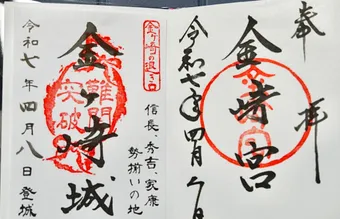 奉拝
金崎宮
令和七年四月八日
金ヶ崎の退き口
信長、秀吉、家康
勢揃いの地
金ヶ崎城
難関突破
令和七年四月八日登城